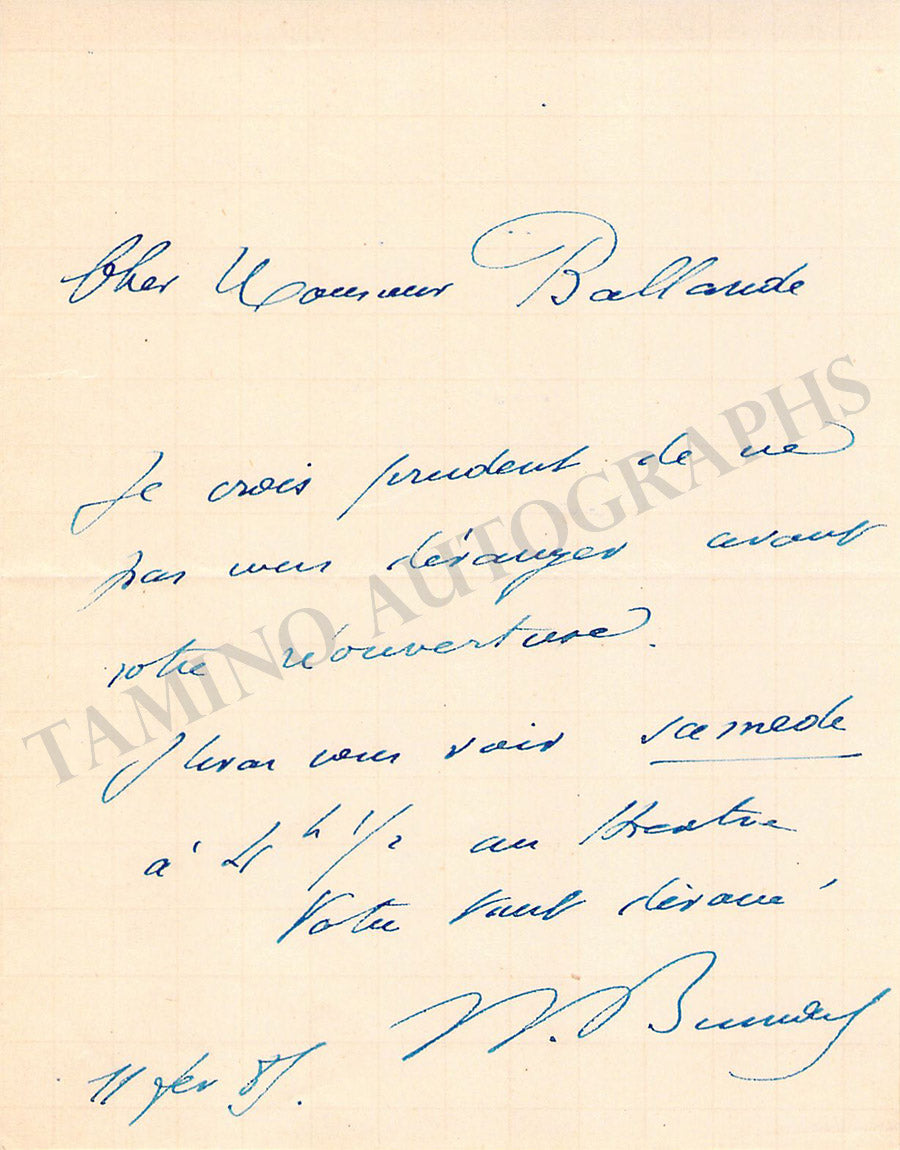 Cher Monsieur Ballande
Je crois prudent de ne
pas vous déranger avant
votre réouverture.
J'irai vous voir samedi
à 4 h 1/2 au théatre
Votre tout dévoué
11 fév 85.
TAMINO AUTOGRAPHS